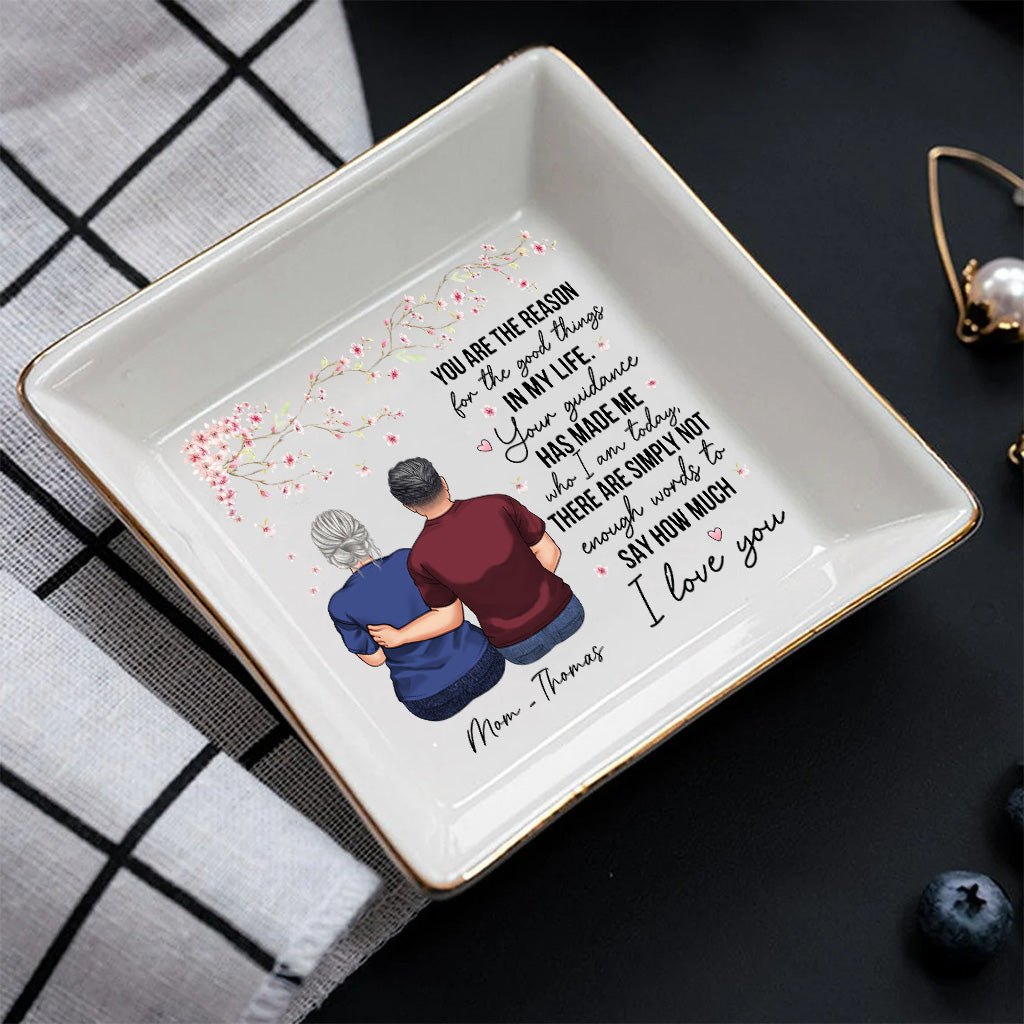 YOU ARE THE REASON
for the good things
IN MY LIFE.
Your guidance
HAS MADE ME
who I am today,
THERE ARE SIMPLY NOT
enough words to
SAY HOW MUCH
I love you
Mom - Thomas